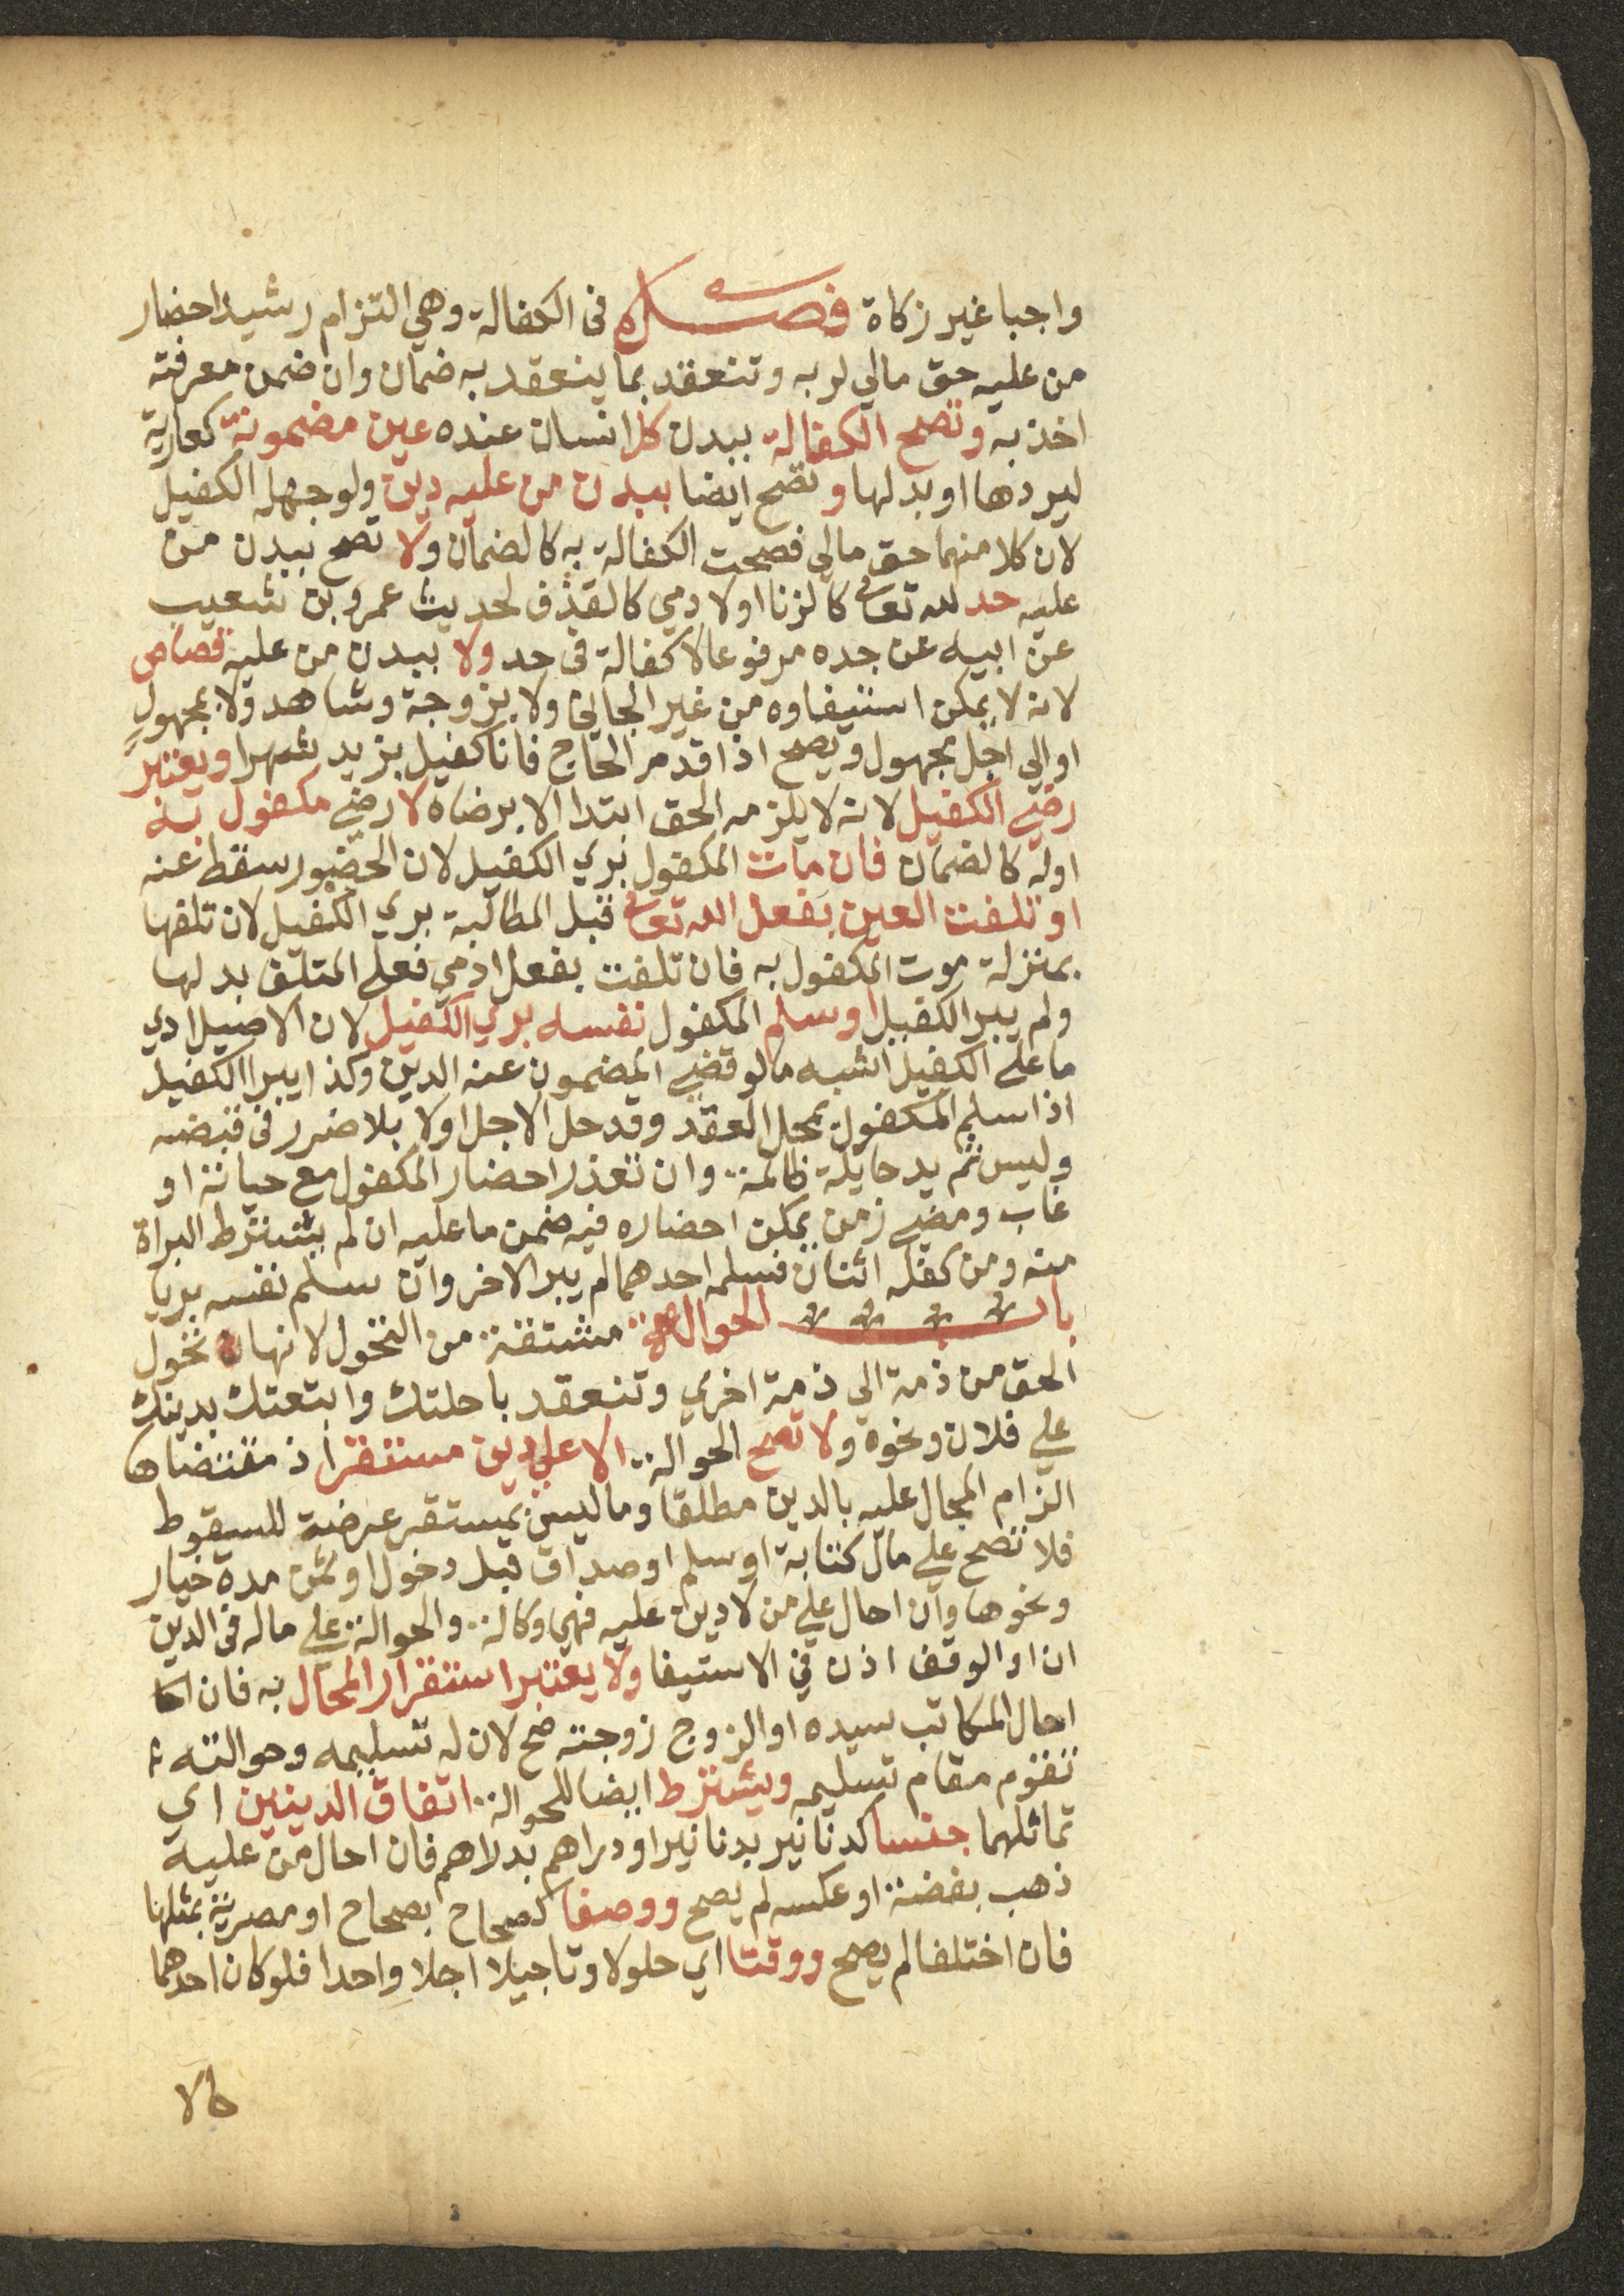 واجبا غير زكاة فصل في الكفالة وهي التزام رشيد احضار
من عليه حق مالي لربه وتنعقد بما ينعقد به ضمان وان ضمن معرفته
اخذ به وتصح الكفالة ببدن كل انسان عنده عين مضمونة كعارية
ليردها او بدلها وتصح ايضا ببدن من عليه دين ولو جهله الكفيل
لان كلا منهما حق مالي فصحت الكفالة به كالضمان ولا تصح ببدن من
عليه حد لله تعالى كالزنا او لادمي كالقذف لحديث عمرو بن شعيب
عن ابيه عن جده مرفوعا لا كفالة في حد ولا ببدن من عليه قصاص
لانه لا يمكن استيفاوه من غير الجاني ولا بزوجة وشاهد ولا بمجهول
او الي اجل مجهول ويصح اذا قدم الحاج فانا كفيل بزيد شهرا ويعتبر
رضي الكفيل لانه لا يلزمه الحق ابتدا الا برضاه لا رضي مكفول به
اوله كالضمان فان مات المكفول بري الكفيل لان الحضور سقط عنه
او تلفت العين بفعل الله تعالى قبل المطالبة بري الكفيل لان تلفها
بمنزلة موت المكفول به فان تلفت بفعل ادمي فعلي المتلف بدلها
ولم يبر الكفيل او سلم المكفول نفسه بري الكفيل لان الاصيل ادي
ما علي الكفيل اشبه ما لو قضي المضمون عنه الدين وكذا يبرا الكفيل
اذا سلم المكفول بمحل العقد وقد حل الاجل اولا بلا ضرر في قبضه
وليس ثم يد حايلة ظالمة وان تعذر احضار المكفول مع حياته او
غاب ومضي زمن يمكن احضاره فيه ضمن ما عليه ان لم يشترط البراة
منه ومن كفله اثنان فسلمه احدهما لم يبر الاخر وان سلم نفسه بريا
باب الحوالة مشتقة من التحول لانها تحول
الحق من ذمة الي ذمة اخري وتنعقد باحلتك وابتعتك بدينك
علي فلان ونحوه ولا تصح الحوالة الا علي دين مستقر اذ مقتضاها
الزام المحال عليه بالدين مطلقا وما ليس بمستقر عرضة للسقوط
فلا تصح علي مال كتابة او سلم او صداق قبل دخول او ثمن مدة خيار
ونحوها وان احال علي من لا دين عليه فهي وكالة والحوالة علي ماله في الدين
ان او الوقف اذن في الاستيفا ولا يعتبر استقرار المحال به فان
احال المكاتب سيده او الزوج زوجته صح لان له تسليمه وحوالته
تقوم مقام تسليمه ويشترط ايضا للحوالة اتفاق الدينين اي
تماثلهما جنسا كدنانير بدنانير او دراهم بدراهم فان احال من عليه
ذهب بفضة او عكسه لم يصح ووصفا كصحاح بصحاح او مصرية بمثلها
فان اختلفا لم يصح ووقتا اي حلولا وتاجيلا اجلا واحدا فلو كان احدهما